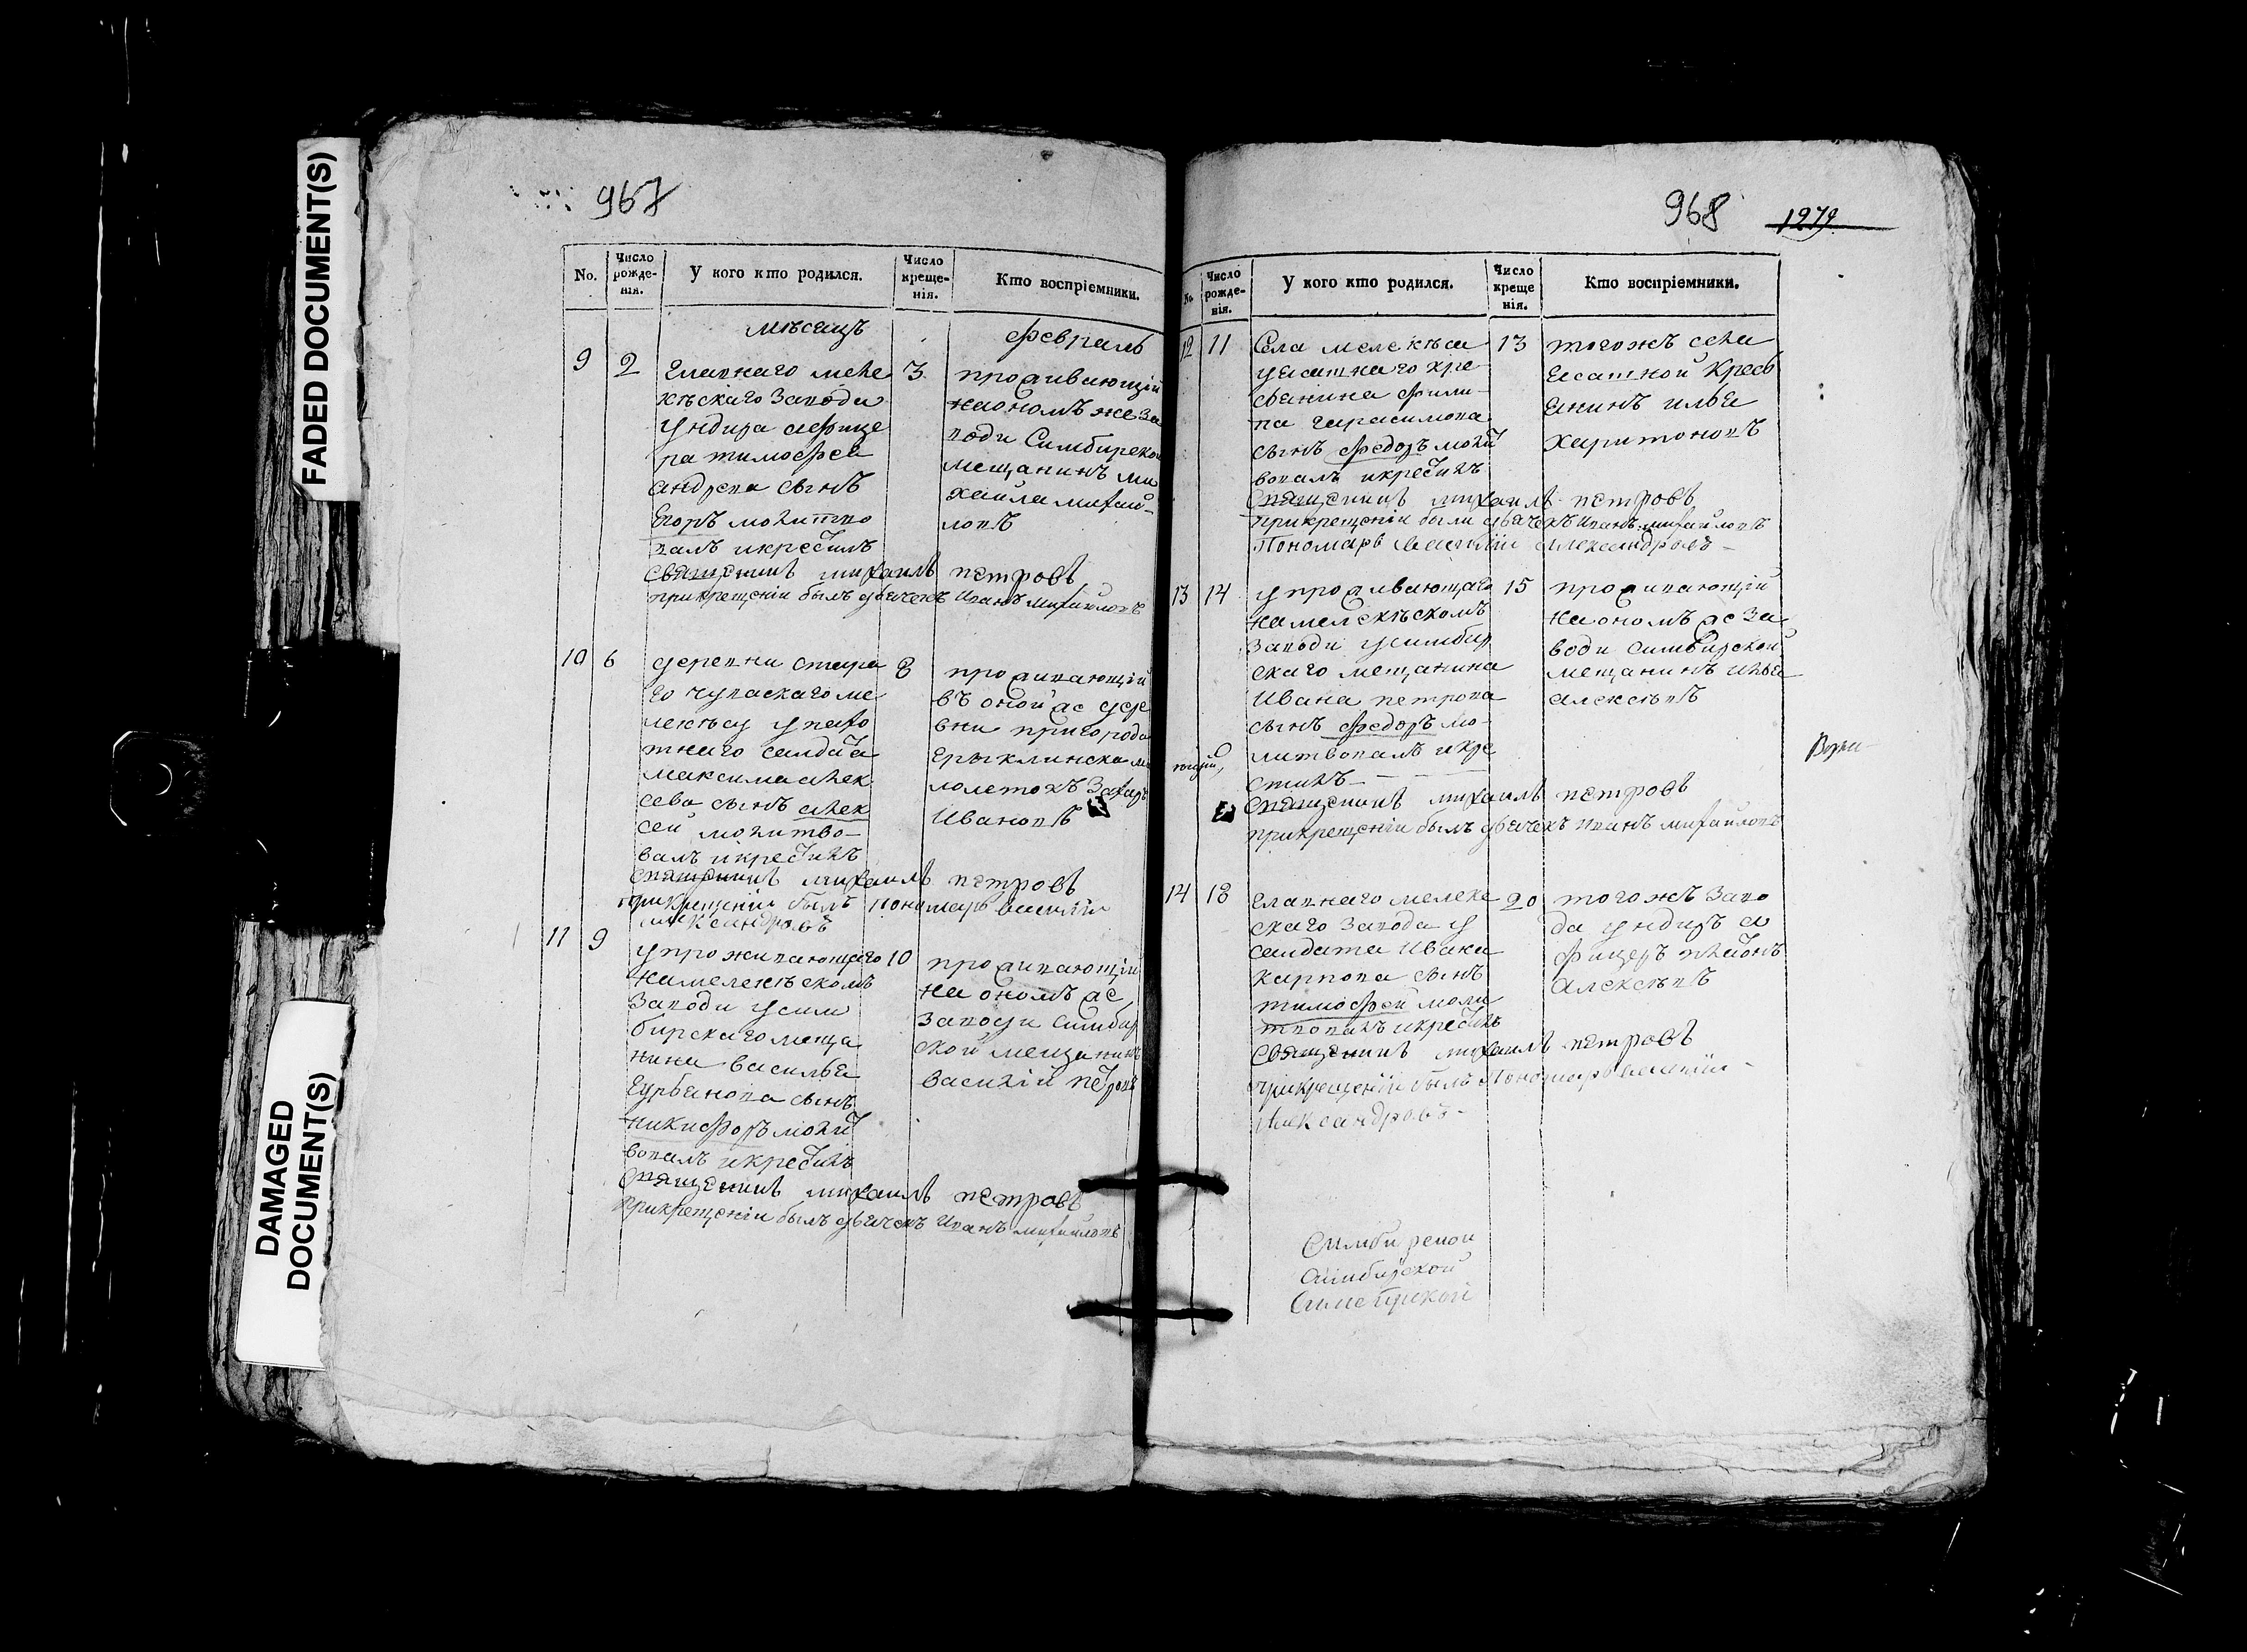 FADED DOCUMENT(S)
DAMAGED DOCUMENT(S)
967
No.
Число рожде- нія.
У кого кто родился.
Число креще- нія.
Кто воспріемники.
мѣсяцъ
февраль
9
2
главнаго меле
кѣскаго завода
ундира афице
ра тимофея
андрева сынъ
Егоръ молитво
валъ икрестилъ
3
проживающій
наономъ же за
води Симбирской
мещанинъ ми
хайла михай-
ловъ
священникъ михаилъ петровъ
прикрещеніи былъ дьячекъ Иванъ михайловъ
10
6
деревни стара
го чуваскаго ме
лекѣсу у пахо
тнаго салдата
максима алек
сева сынъ алек
сей молитво-
валъ икрестилъ
8
проживающій
въ оной же дере
вни пригорода
Ерыклинска ма
лолетокъ Захаръ
Ивановъ
священникъ михаилъ петровъ
прикрещеніи былъ пономарь василій
александровъ
11
9
упроживающаго
намелекѣскомъ
Заводи усим
бирскаго меща
нина василья
Курьянова сынъ
никифоръ молит
вовалъ икрестилъ
10
проживающій
на ономъ же
заводи симбир
ской мещанинъ
василій петровъ
священникъ михаилъ петровъ
прикрещеніи былъ дьячекъ Иванъ михайловъ
968
1279
No
Число рожде- нія.
У кого кто родился.
Число креще нія.
Кто воспріемники.
12
11
Села мелекѣса
уясашнаго кре
стьянина фили-
па гарасимова
сынъ федоръ молит
вовалъ икрестилъ
13
тогожъ села
ясашной крест
янинъ илья
харитоновъ
священникъ михаилъ петровъ
прикрещеніи были дьячекъ Иванъ михайловъ
Пономарь василій александровъ-
13
14
упроживающаго
намелекѣскомъ
Заводи усимбир
скаго мещанина
Ивана петрова
сынъ федоръ мо-
литвовалъ икре
стилъ
15
проживающій
на ономъ же за
води симбирской
мещанинъ илья
алексѣевъ
священникъ михаилъ петровъ
прикрещеніи былъ дьячекъ Иванъ михайловъ
14
18
главнаго мелеке
скаго завода у
салдата Ивана
карпова сынъ
тимофей моли
твовалъ икрестилъ
20
тогожъ заво
да ундиръ а
фицеръ
алексѣевъ
священникъ михаилъ петровъ
прикрещеніи былъ Пономарь василій
Александровъ-
Симбирской
Симбирской